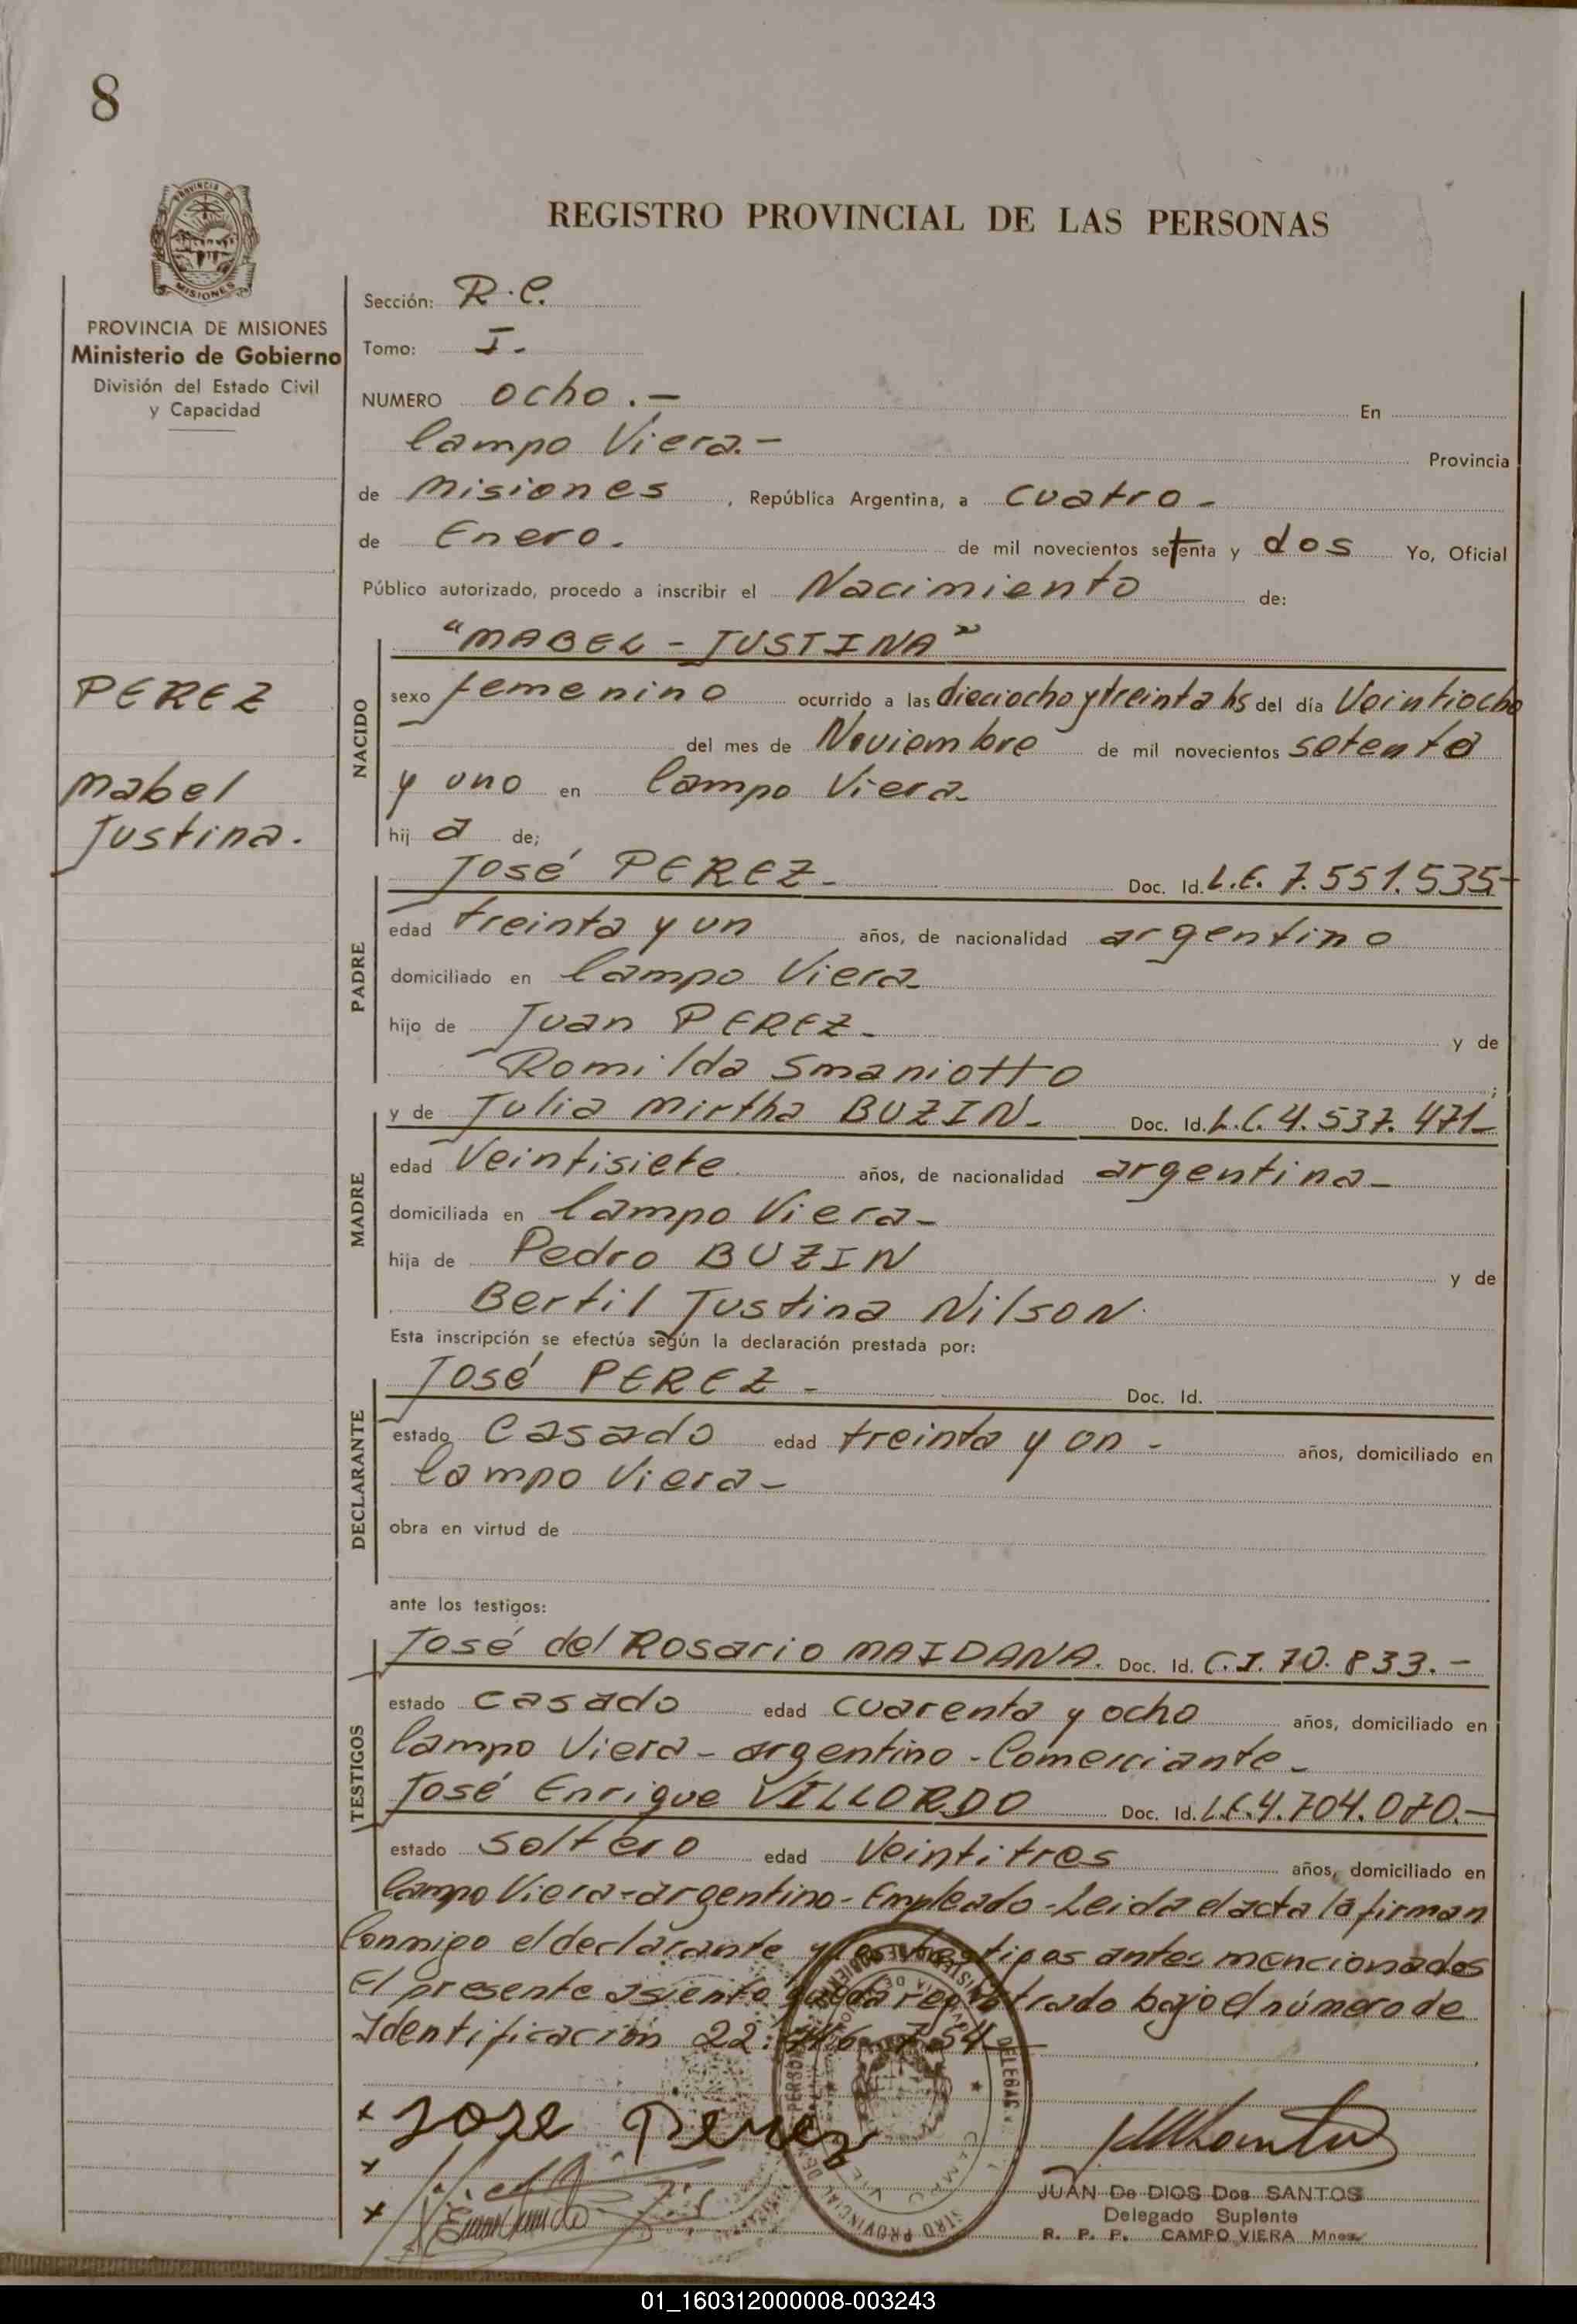 8
PROVINCIA DE
MISIONES
PROVINCIA DE MISIONES
Ministerio de Gobierno
División del Estado Civil
y Capacidad
PEREZ
Mabel
Justina.
REGISTRO PROVINCIAL DE LAS PERSONAS
Sección: R.C.
Tomo: I.-
NUMERO ocho.- En
Campo Viera.- Provincia
de Misiones, República Argentina, a cuatro-
de Enero. de mil novecientos setenta y dos Yo, Oficial
Público autorizado, procedo a inscribir el Nacimiento de:
NACIDO
"MABEL - JUSTINA"
sexo femenino ocurrido a las dieciocho y treinta hs del día Veintiocho
del mes de Noviembre de mil novecientos setenta
y uno en Campo Viera.
hij a de;
PADRE
José PEREZ- Doc. Id. L.E. 7.551.535-
edad treinta y un años, de nacionalidad argentino
domiciliado en Campo Viera
hijo de Juan PEREZ- y de
Romilda Smaniotto ;
MADRE
y de Julia Mirtha BUZIN- Doc. Id. L.C. 4.537.471-
edad Veintisiete. años, de nacionalidad argentina-
domiciliada en Campo Viera-
hija de Pedro BUZIN y de
Bertil Justina Nilson
Esta inscripción se efectúa según la declaración prestada por:
DECLARANTE
José PEREZ- Doc. Id.
estado Casado edad treinta y un- años, domiciliado en
Campo Viera-
obra en virtud de
ante los testigos:
TESTIGOS
José del Rosario MAIDANA. Doc. Id. C.I. 70.833.-
estado casado edad cuarenta y ocho años, domiciliado en
Campo Viera- argentino- Comerciante-
José Enrique VILLORDO Doc. Id. L.E. 4.704.070.-
estado soltero edad Veintitres años, domiciliado en
Campo Viera- argentino- Empleado- Leida el acta la firman
Conmigo el declarante y los testigos antes mencionados
El presente asiento queda registrado bajo el número de
Identificación 22. 754
x Jose Perez
x
x
JUAN De DIOS Dos SANTOS
Delegado Suplente
R. P. P. CAMPO VIERA Mnes.
01_160312000008-003243